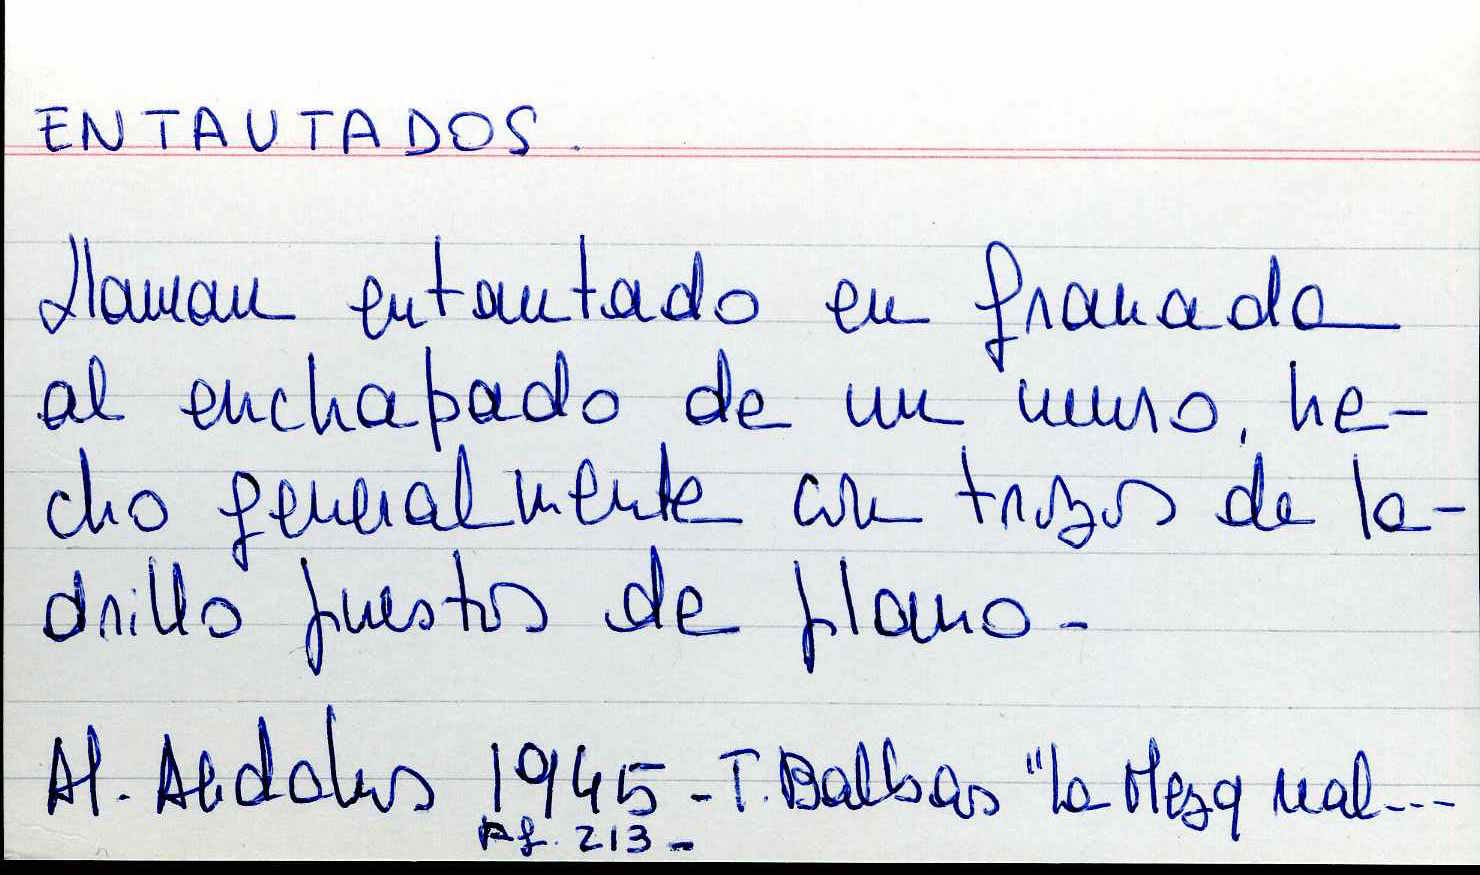 ENTAUTADOS.
Llaman entautado en Granada
al enchapado de un muro, he-
cho generalmente con trozos de la-
drillo puestos de plano-
Al. Andalus 1945 - T. Balbas "la Mezq real---
Pg. 213-